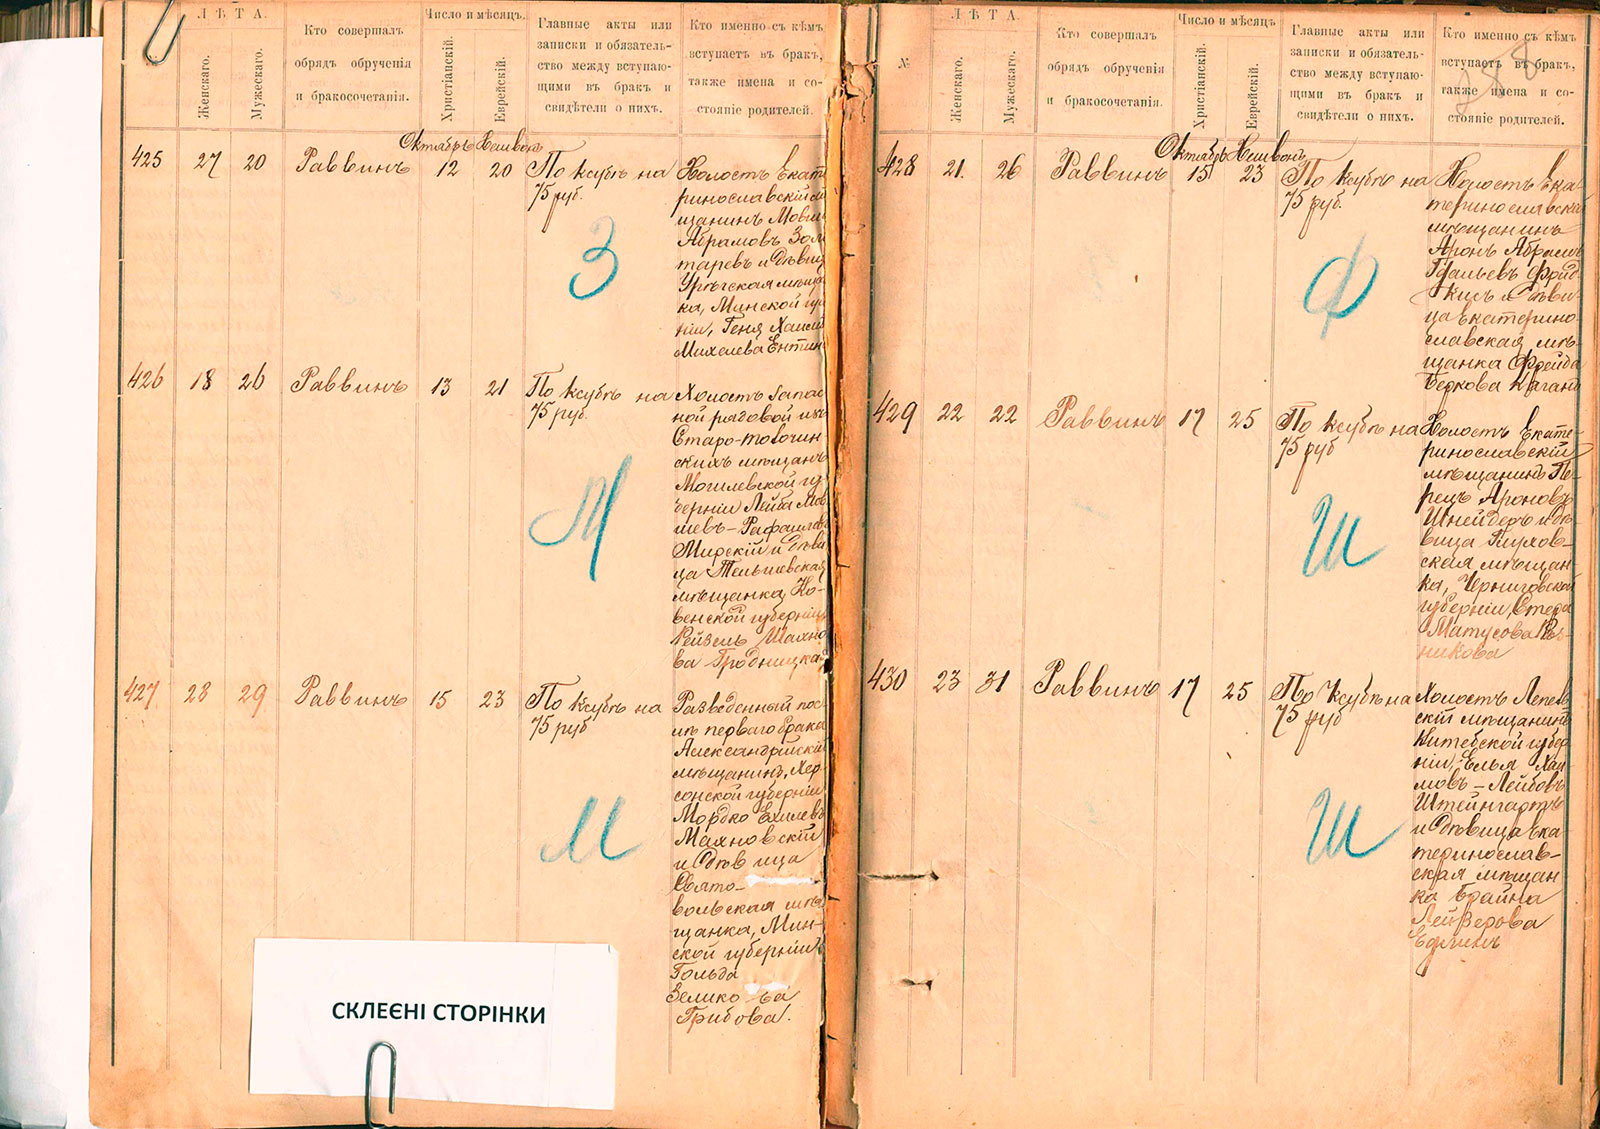 ЛѢТА.
Женскаго.
Мужескаго.
Кто совершалъ
обрядъ обрученія
и бракосочетанія.
Число и мѣсяцъ.
Христіанскій.
Еврейскій.
Главные акты или
записки и обязатель-
ство между вступаю-
щими въ бракъ и
свидѣтели о нихъ.
Кто именно съ кѣмъ
вступаетъ въ бракъ,
также имена и со-
стояніе родителей.
Октябрь Хешвонъ
425 27 20 Раввинъ 12 20 По ксубѣ на
75 руб.
Холостъ Екат
ринославскій мѣ
щанинъ Мовш
Абрамовъ Зол
таревъ и дѣвиц
ская мѣщан
ка, Минской гу
ніи, Геня Хаим
Михелева Ентин
З
426 18 26 Раввинъ 13 21 По ксубѣ на
75 руб.
Холостъ запас
ной рядовой изъ
Старо-толочин
скихъ мѣщанъ
Могилевской гу
берніи Лейба Мов
шевъ-Рафаилов
Мирскій и дѣви
ца Тельшевская
мѣщанка, Ко-
венской губерніи
Рейзель Шахно
ва Гродницкая
М
427 28 29 Раввинъ 15 23 По ксубѣ на
75 руб
Разведенный пос
лѣ перваго брака
Александрійскій
мѣщанинъ, Хер-
сонской губерніи
Мордко Ехилевъ
Махновскій
и дѣвица
Свято-
вольская мѣ
щанка, Мин-
ской губерніи
Гольда
Зелико ва
Грибова.
М
СКЛЕЄНІ СТОРІНКИ
288
№
ЛѢТА.
Женскаго.
Мужескаго.
Кто совершалъ
обрядъ обрученія
и бракосочетанія.
Число и мѣсяцъ
Христіанскій.
Еврейскій.
Главные акты или
записки и обязатель-
ство между вступаю-
щими въ бракъ и
свидѣтели о нихъ.
Кто именно съ кѣмъ
вступаетъ въ бракъ,
также имена и со-
стояніе родителей.
Октябрь Хешвонъ
428 21. 26 Раввинъ 15 23 По ксубѣ на
75 руб.
Холостъ Ека-
теринославскій
мѣщанинъ
Аронъ Абрамъ
Гдальевъ Фрид
кисъ и дѣви-
ца Екатерино-
славская мѣ-
щанка Фрейда
Беркова Каган
Ф
429 22 22 Раввинъ 17 25 По ксубѣ на
75 руб
Холостъ Екате-
ринославскій
мѣщанинъ Пе-
рецъ Ароновъ
Шнейдеръ и дѣ-
вица Глухов-
ская мѣщан-
ка, Черниговской
губерніи, Стера
Матусова Рѣз-
никова
Ш
430 23 31 Раввинъ 17 25 По ксубѣ на
75 руб
Холостъ Лепель
скій мѣщанинъ
Витебской губер
ніи, Елья Хаи
мовъ-Лейбовъ
Штейнгартъ
и дѣвица Ека-
теринослав-
ская мѣщан
ка Брайна
Лейзерова